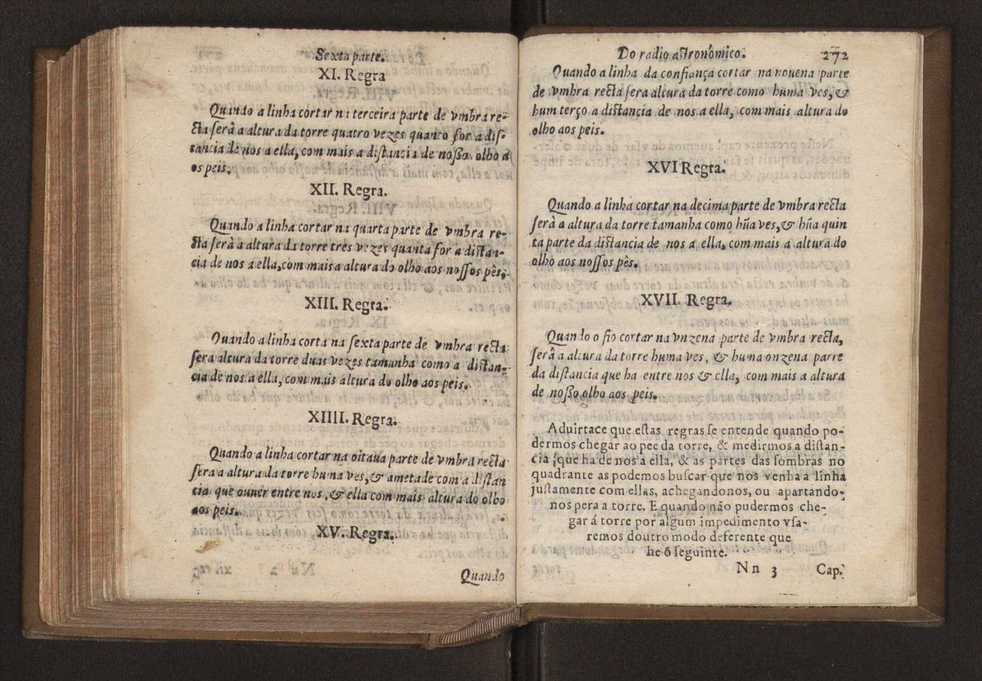 Sexta parte.
XI. Regra
Quando a linha cortar na terceira parte de vmbra re-
cta serâ a altura da torre quatro vezes quanto for a dis-
tancia de nos a ella, com mais a distancia de nosso olho a
os peis.
XII. Regra.
Quando a linha cortar na quarta parte de vmbra re-
cta serà a altura da torre tres vezes quanta for a distan-
cia de nos a ella, com mais a altura do olho aos nossos pês.
XIII. Regra.
Quando a linha corta na sexta parte de vmbra recta
sera altura da torre duas vezes tamanha como a distan-
cia de nos a ella, com mais altura do olho aos peis.
XIIII. Regra.
Quando a linha cortar na oitaua parte de vmbra recta
sera a altura da torre huma ves, & ametade com a distan
cia que ouuer entre nos, & ella com mais altura do olho
aos peis.
XV. Regra.
Quando
Do radio astronomico. 272
Quando a linha da confiança cortar na nouena parte
de vmbra recta sera altura da torre como huma ves, &
hum terço a distancia de nos a ella, com mais altura do
olho aos peis.
XVI Regra.
Quando a linha cortar na decima parte de vmbra recta
serâ a altura da torre tamanha como hũa ves, & hũa quin
ta parte da distancia de nos a ella, com mais a altura do
olho aos nossos pês.
XVII. Regra.
Quando o fio cortar na vnzena parte de vmbra recta,
serâ a altura da torre huma ves, & huma onzena parte
da distancia que ha entre nos & ella, com mais a altura
de nosso olho aos peis.
Aduirtace que estas regras se entende quando po-
dermos chegar ao pee da torre, & medirmos a distan-
cia, que ha de nos a ella, & as partes das sombras no
quadrante as podemos buscar que nos venha a linha
justamente com ellas, achegandonos, ou apartando-
nos pera a torre. E quando não pudermos che-
gar á torre por algum impedimento vsa-
remos doutro modo deferente que
he ô seguinte.
Nn 3 Cap.